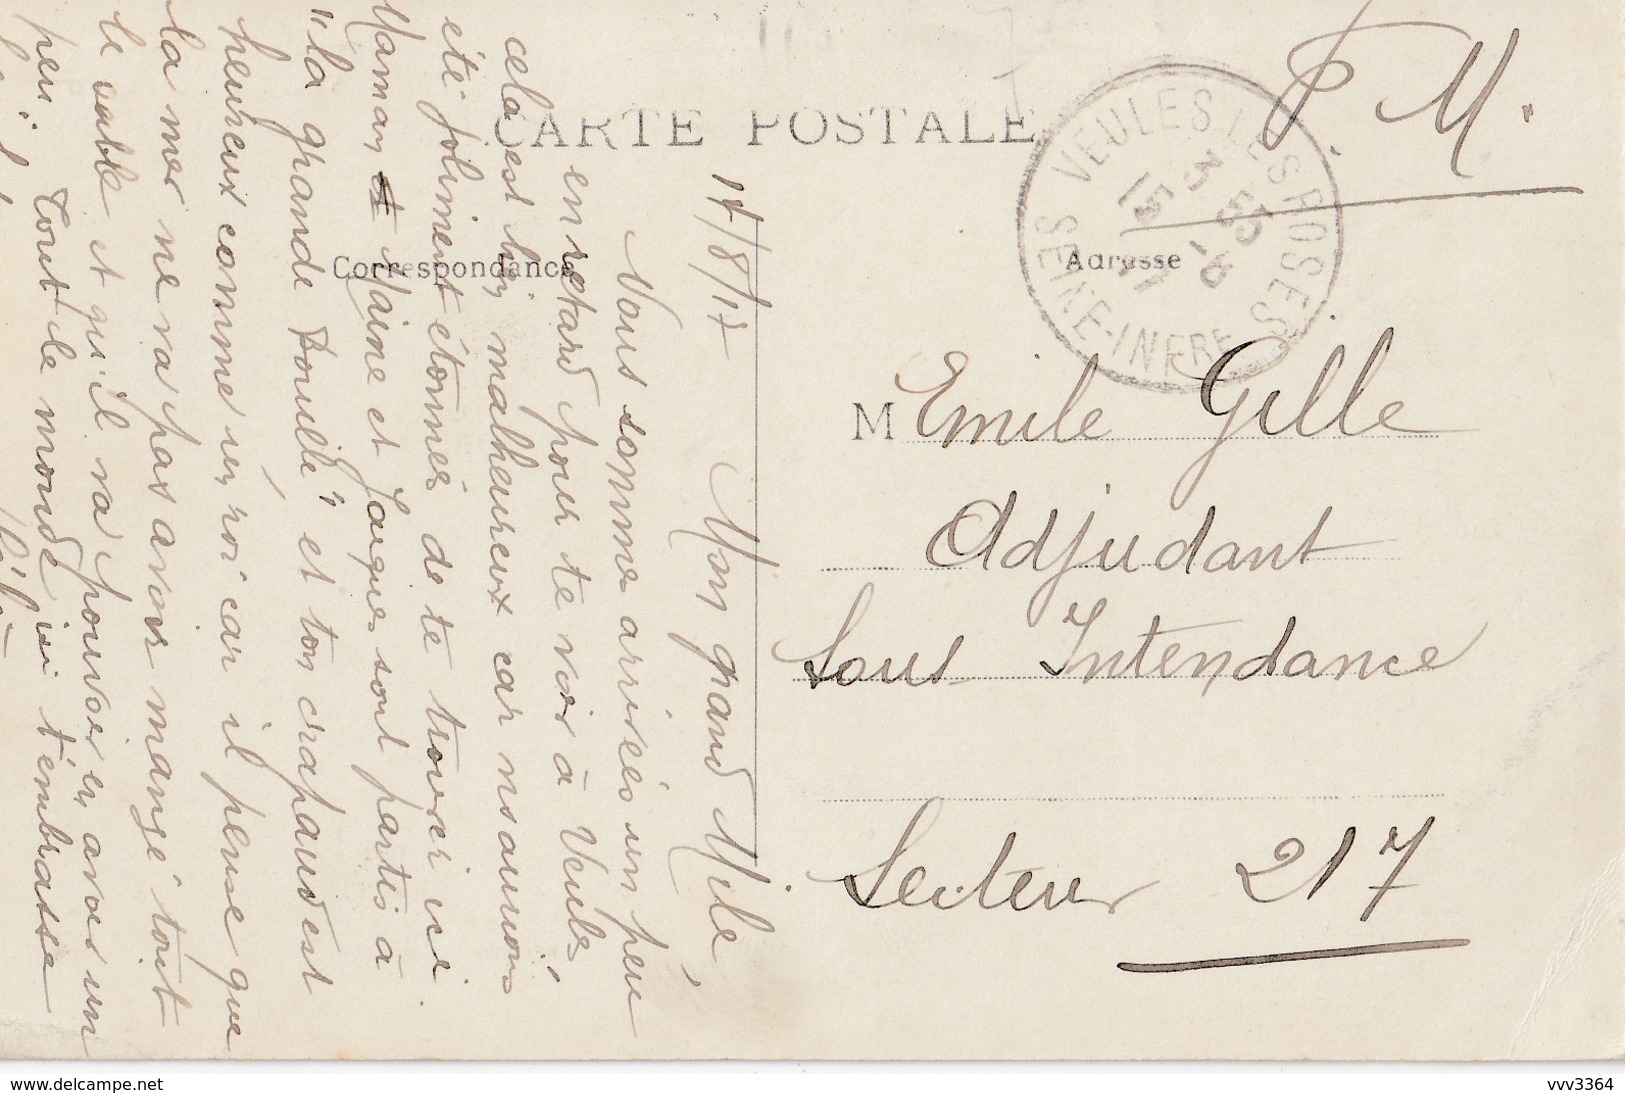 CARTE POSTALE
Correspondance
Adresse
F. M.
VEULES LES ROSES
SEINE-INFRE
3 55
15 -8
17
M Emile Gille
Adjudant
Sous Intendance
Secteur 217
14/8/17
Mon grand Mile,
Nous sommes arrivés un peu
en retard pour te voir à Veules
cela est bien malheureux car nous aurions
été joliment étonnés de te trouver ici.
Maman et Naine et Jacques sont partis à
"la grande Douille" et ton crapaud est
heureux comme un roi car il pense que
la mer ne va pas avoir mangé tout
le sable et qu'il va pouvoir en avoir un
peu".
Tout le monde ici t'embrasse
delcampe.net
vvv3364